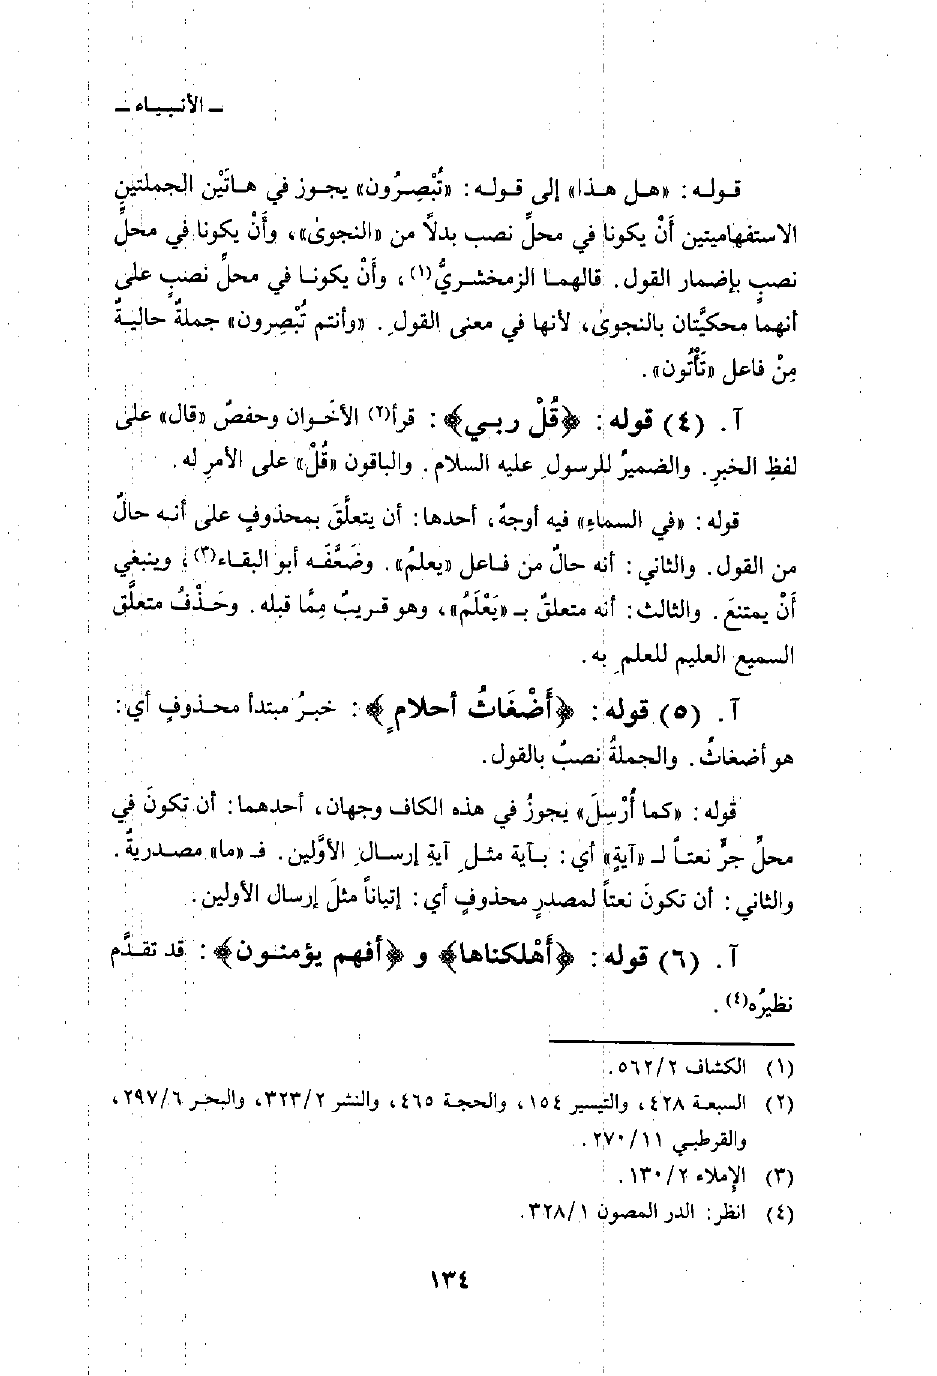 ـ الأنبياء ـ
قوله: «هل هذا» إلى قوله: «تُبْصِرُون» يجوز في هاتَيْن الجملتين
الاستفهاميتين أَنْ يكونا في محلِّ نصب بدلاً من «النجوىٰ»، وأَنْ يكونا في محلِّ
نصبٍ بإضمار القول. قالهما الزمخشريُّ(١)، وأَنْ يكونا في محلِّ نصبٍ على
أنهما محكيَّتان بالنجوىٰ، لأنها في معنى القولِ. «وأنتم تُبْصِرون» جملةٌ حاليةٌ
مِنْ فاعل «تَأْتُون».
آ. (٤) قوله: ﴿قُلْ ربي﴾: قرأ(٢) الأخَوان وحفصٌ «قال» على
لفظِ الخبرِ. والضميرُ للرسولِ عليه السلام. والباقون «قُلْ» على الأمرِ له.
قوله: «في السماءِ» فيه أوجهٌ، أحدها: أن يتعلَّقَ بمحذوفٍ على أنه حالٌ
من القول. والثاني: أنه حالٌ من فاعل «يعلمُ». وضَعَّفَه أبو البقاء(٣)، وينبغي
أَنْ يمتنعَ. والثالث: أنه متعلقٌ بـ «يَعْلَمُ»، وهو قريبٌ مِمَّا قبله. وحَذْفُ متعلَّق
السميع العليم للعلمِ به.
آ. (٥) قوله: ﴿أَضْغَاثُ أحلامٍ﴾: خبرُ مبتدأ محذوفٍ أي:
هو أضغاثُ. والجملةُ نصبٌ بالقول.
قوله: «كما أُرْسِلَ» يجوزُ في هذه الكاف وجهان، أحدهما: أن تكونَ في
محلِّ جرٍّ نعتاً لـ «آيةٍ» أي: بآية مثلِ آيةِ إرسالِ الأوَّلين. فـ «ما» مصدريةٌ.
والثاني: أن تكونَ نعتاً لمصدرٍ محذوفٍ أي: إتياناً مثلَ إرسال الأولين.
آ. (٦) قوله: ﴿أَهْلكناها﴾ و ﴿أفهم يؤمنون﴾: قد تقدَّم
نظيرُه(٤).
(١) الكشاف ٥٦٢/٢.
(٢) السبعة ٤٢٨، والتيسير ١٥٤، والحجة ٤٦٥، والنشر ٣٢٣/٢، والبحر ٢٩٧/٦،
والقرطبي ٢٧٠/١١.
(٣) الإملاء ١٣٠/٢.
(٤) انظر: الدر المصون ٣٢٨/١.
١٣٤